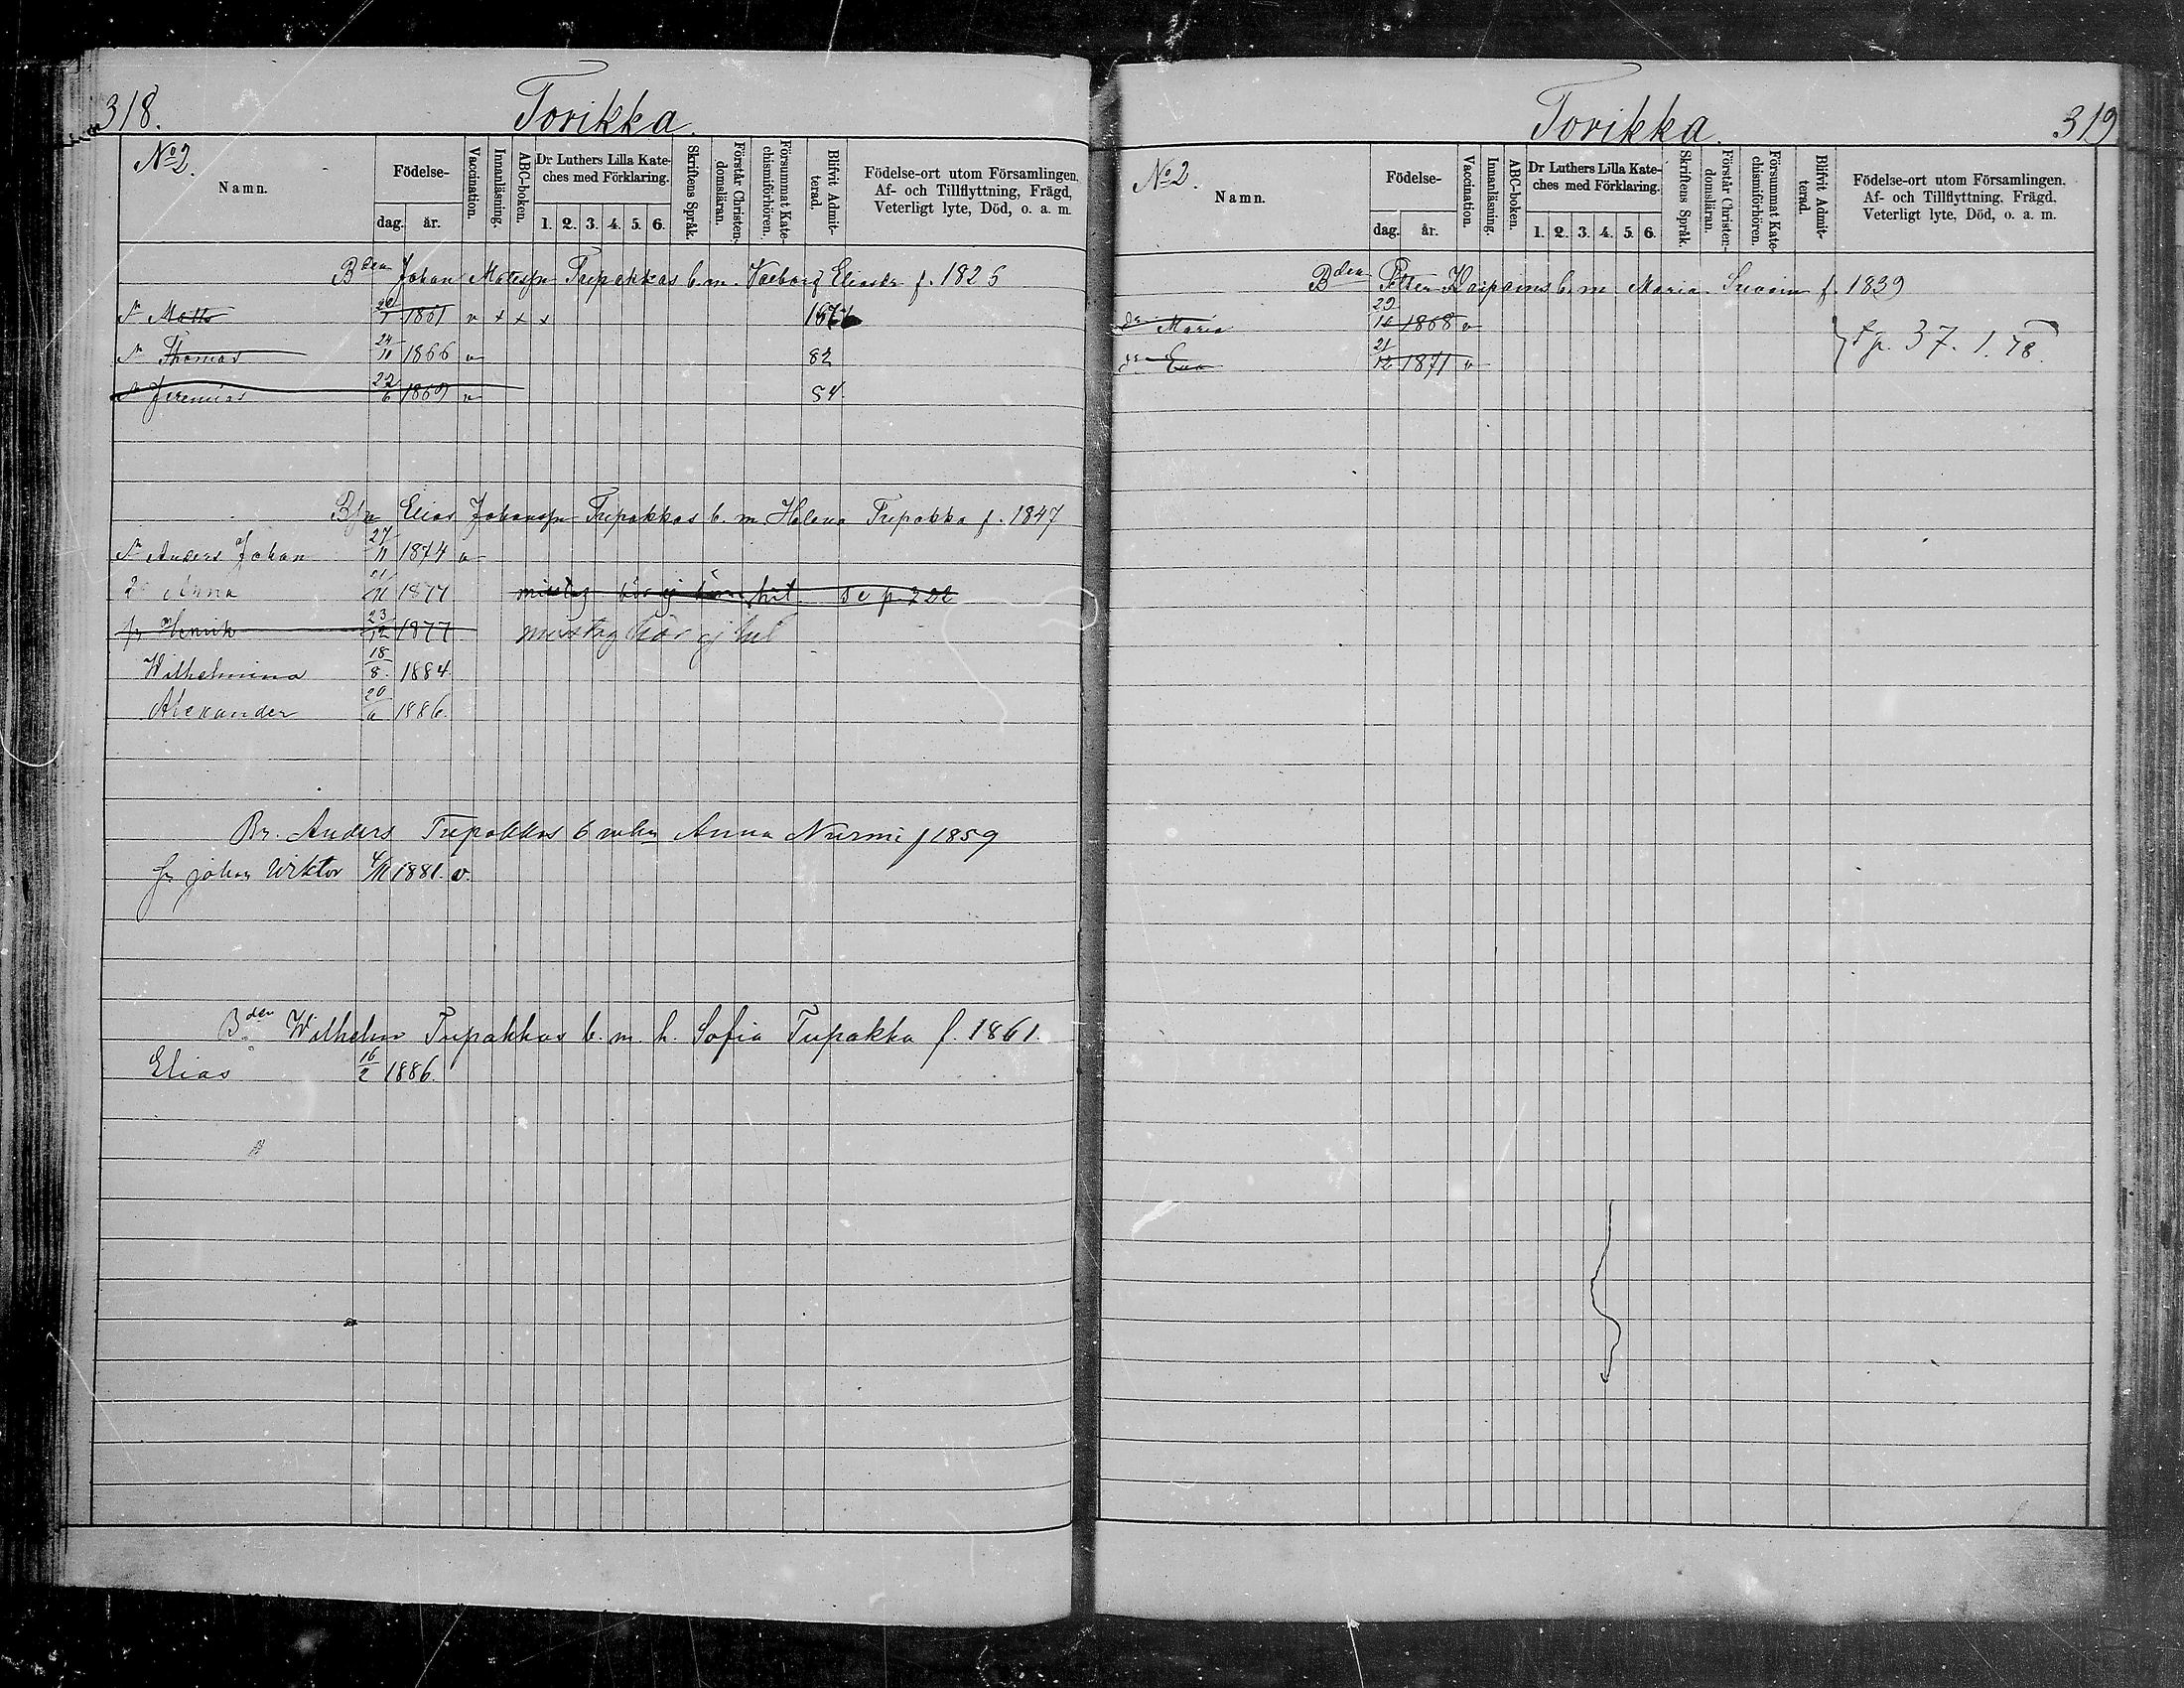 318.
Torikka
No 2.
Namn.
Födelse-
dag.
år.
Vaccination.
Innanläsning.
ABC-boken.
Dr Luthers Lilla Kate-
ches med Förklaring.
1. 2. 3. 4. 5. 6.
Skriftens Språk.
Förstår Christen-
domsläran.
Försummat Kate-
chismiförhören.
Blifvit Admit-
terad.
Födelse-ort utom Församlingen,
Af- och Tillflyttning, Frägd,
Veterligt lyte, Död, o. a. m.
Bden Johan Matsspn Tupakkas b. m. Valborg Eliasdr f. 1825
Sn Matts 1861 v x x x
Sn Thomas 24/11 1866 v 82
Sn Jeremias 22/6 1869 v 84.
Elias Johansspn Tupakkas b. m. Helena Tupakka f. 1847
Sn Anders Johan 27/11 1874 v
Anna 21/11 1877 misstag hör ej hit se p. 222
Henrik 23/12 1877 misstag hör ej hit
Wilhelmina 18/8 1884.
Alexander 20/6 1886.
Br. Anders Tupakkas b m hu Anna Nurmi f 1859
Johan Wiktor 4/11 1881. v.
Bden Wilhelm Tupakkas b. m. h. Sofia Tupakka f. 1861.
Elias 16/2 1886.
Torikka
319
No 2.
Namn.
Födelse-
dag.
år.
Vaccination.
Innanläsning.
ABC-boken.
Dr Luthers Lilla Kate-
ches med Förklaring.
1. 2. 3. 4. 5. 6.
Skriftens Språk.
Förstår Christen-
domsläran.
Försummat Kate-
chismiförhören.
Blifvit Admit-
terad.
Födelse-ort utom Församlingen.
Af- och Tillflyttning, Frägd,
Veterligt lyte, Död, o. a. m.
Bden Petter b. m. Maria f. 1839
dr Maria 1868 v
dr Eva 21/12 1871 v
p. 37. 1. 78.